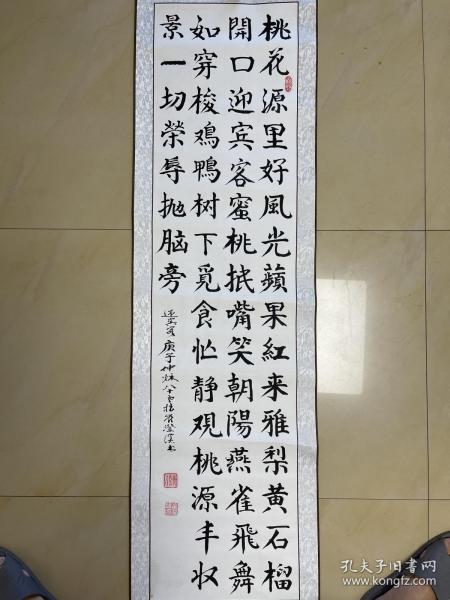 桃花源里好風光蘋果紅来雅梨黄石榴
開口迎宾客蜜桃抿嘴笑朝陽燕雀飛舞
如穿梭鳮鴨树下觅食忙静观桃源丰收
景一切榮辱抛脑旁
庚子仲秋
孔夫子旧书网
www.kongfz.com